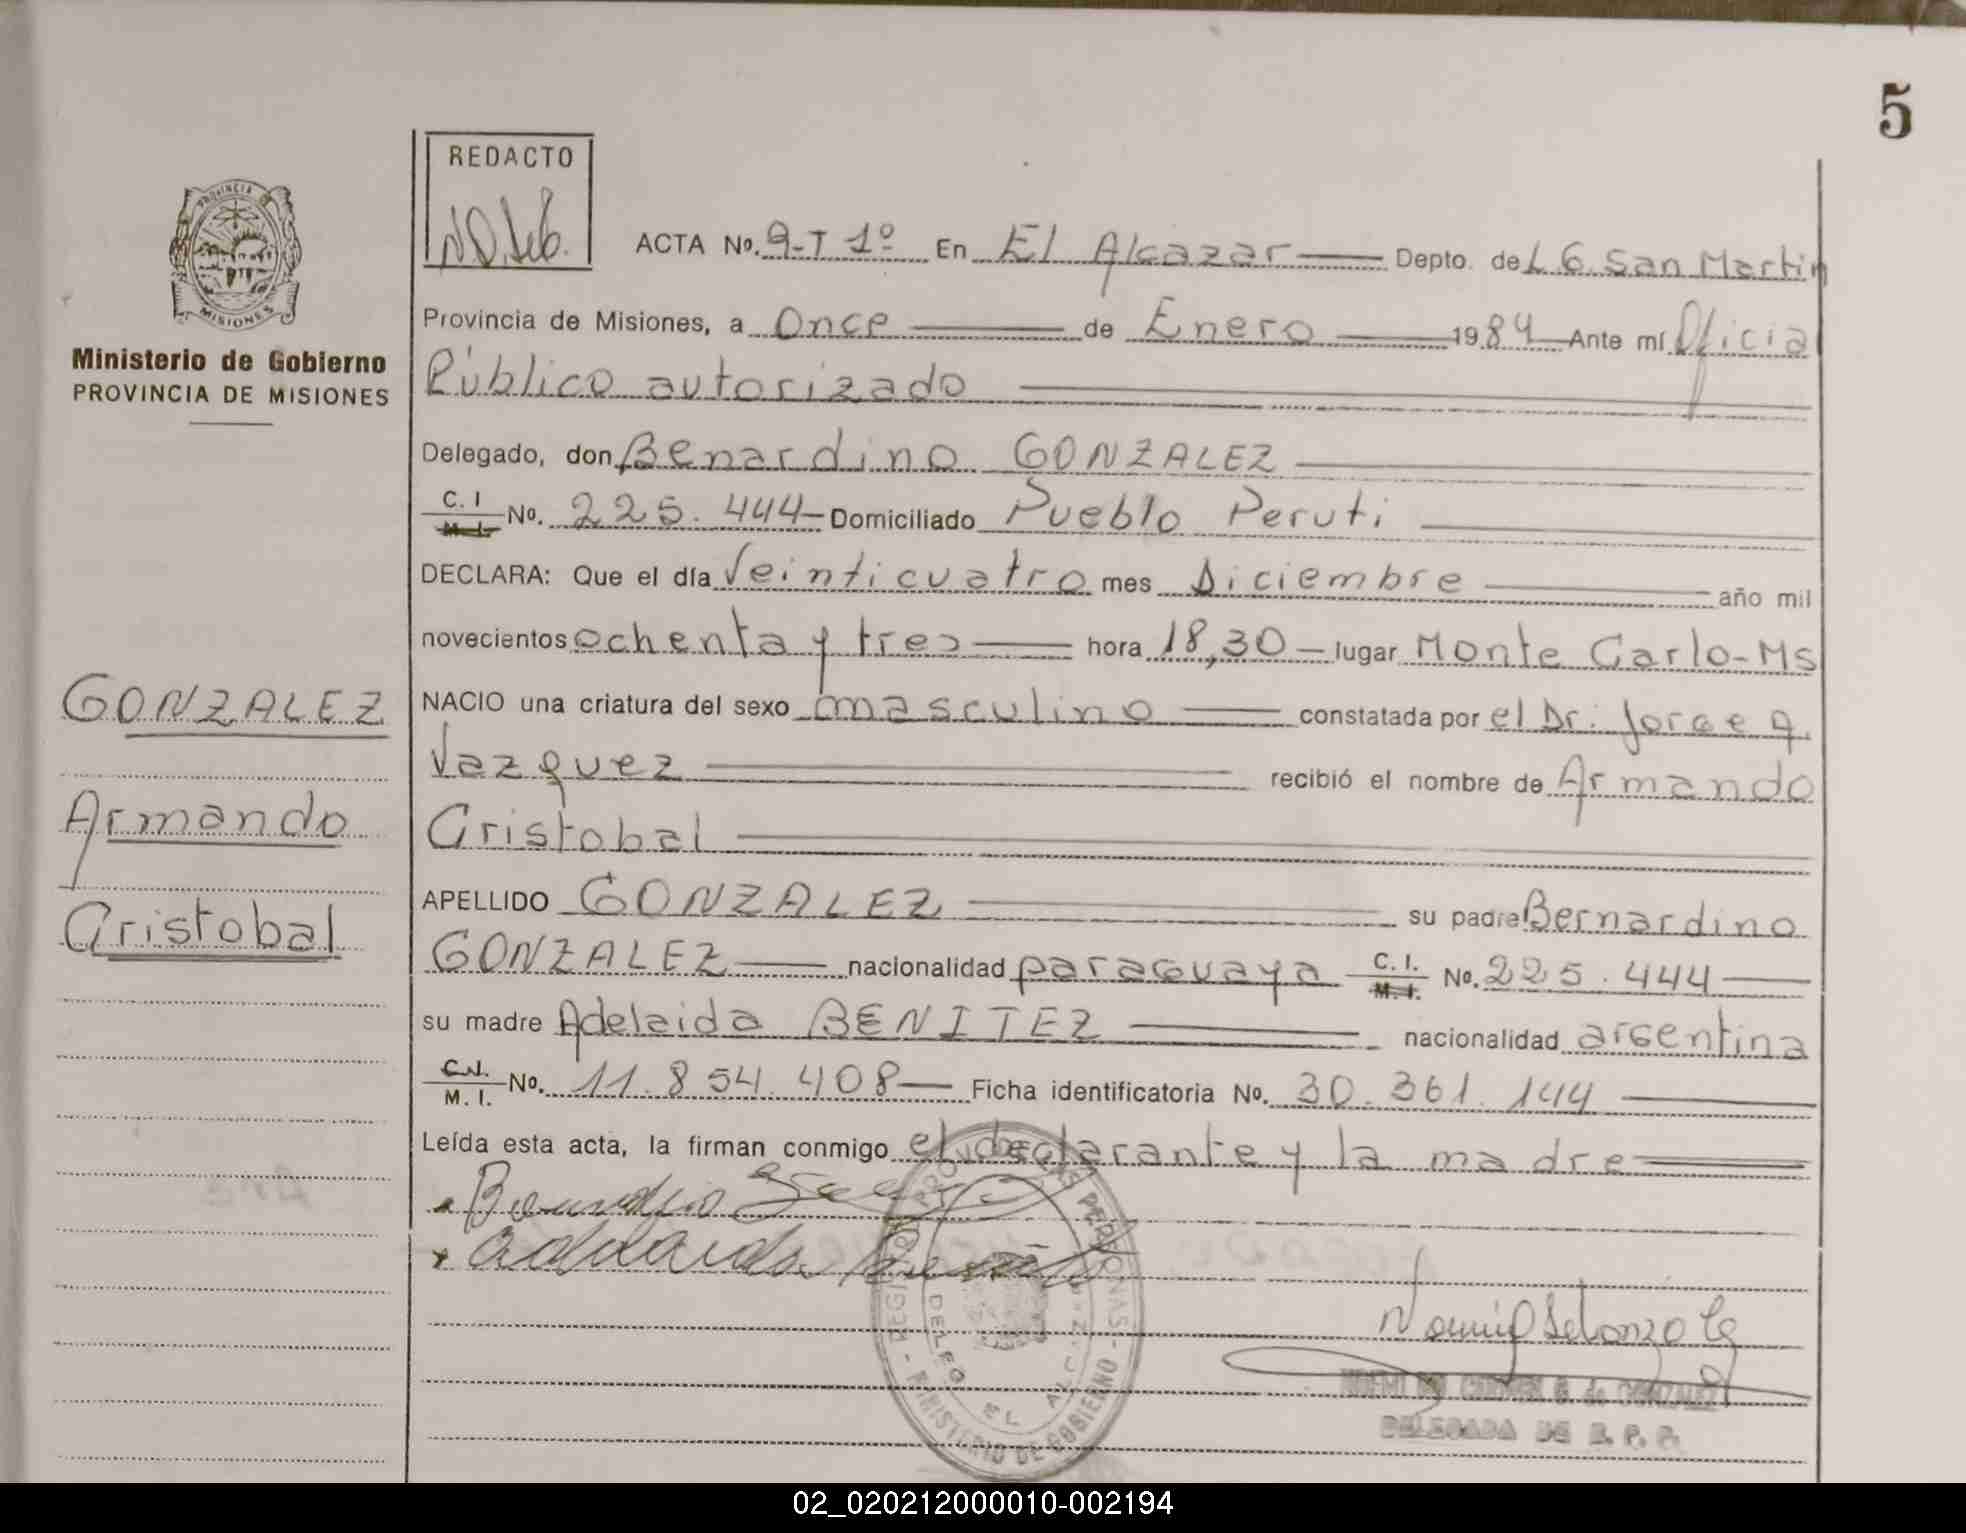 5
REDACTO
PROVINCIA
MISIONES
Ministerio de Gobierno
PROVINCIA DE MISIONES
ACTA Nº. 9-T 1º En El Alcazar Depto. de L G. San Martin
Provincia de Misiones, a Once de Enero 1984 Ante mí Oficial
Público autorizado
Delegado, don Benardino GONZALEZ
C. I
M. I. Nº. 225.444 Domiciliado Pueblo Peruti
DECLARA: Que el día Veinticuatro mes Diciembre año mil
novecientos ochenta y tres hora 18,30 lugar Monte Carlo-Ms
GONZALEZ
NACIO una criatura del sexo masculino constatada por el Dr. Jorge A.
Vazquez recibió el nombre de Armando
Armando
Cristobal
APELLIDO GONZALEZ su padre Bernardino
Cristobal
GONZALEZ nacionalidad paraguaya C. I. M. I. No. 225.444
su madre Adelaida BENITEZ nacionalidad argentina
C. I. M. I. Nº. 11.854.408 Ficha identificatoria No. 30.361.144
Leída esta acta, la firman conmigo el declarante y la madre
DELEG EL ALCAZAR
MINISTERIO DE GOBIERNO
DELEGADA DE R. P. P.
02_020212000010-002194